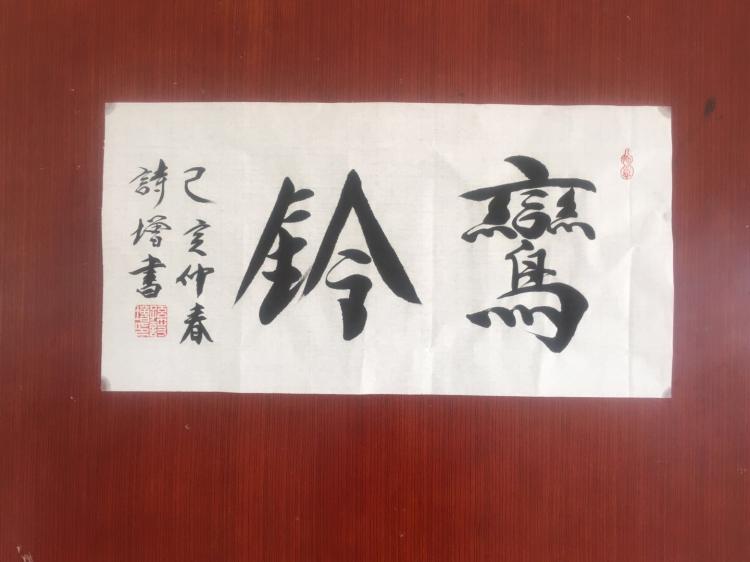 鸞鈴
己亥仲春
詩增書